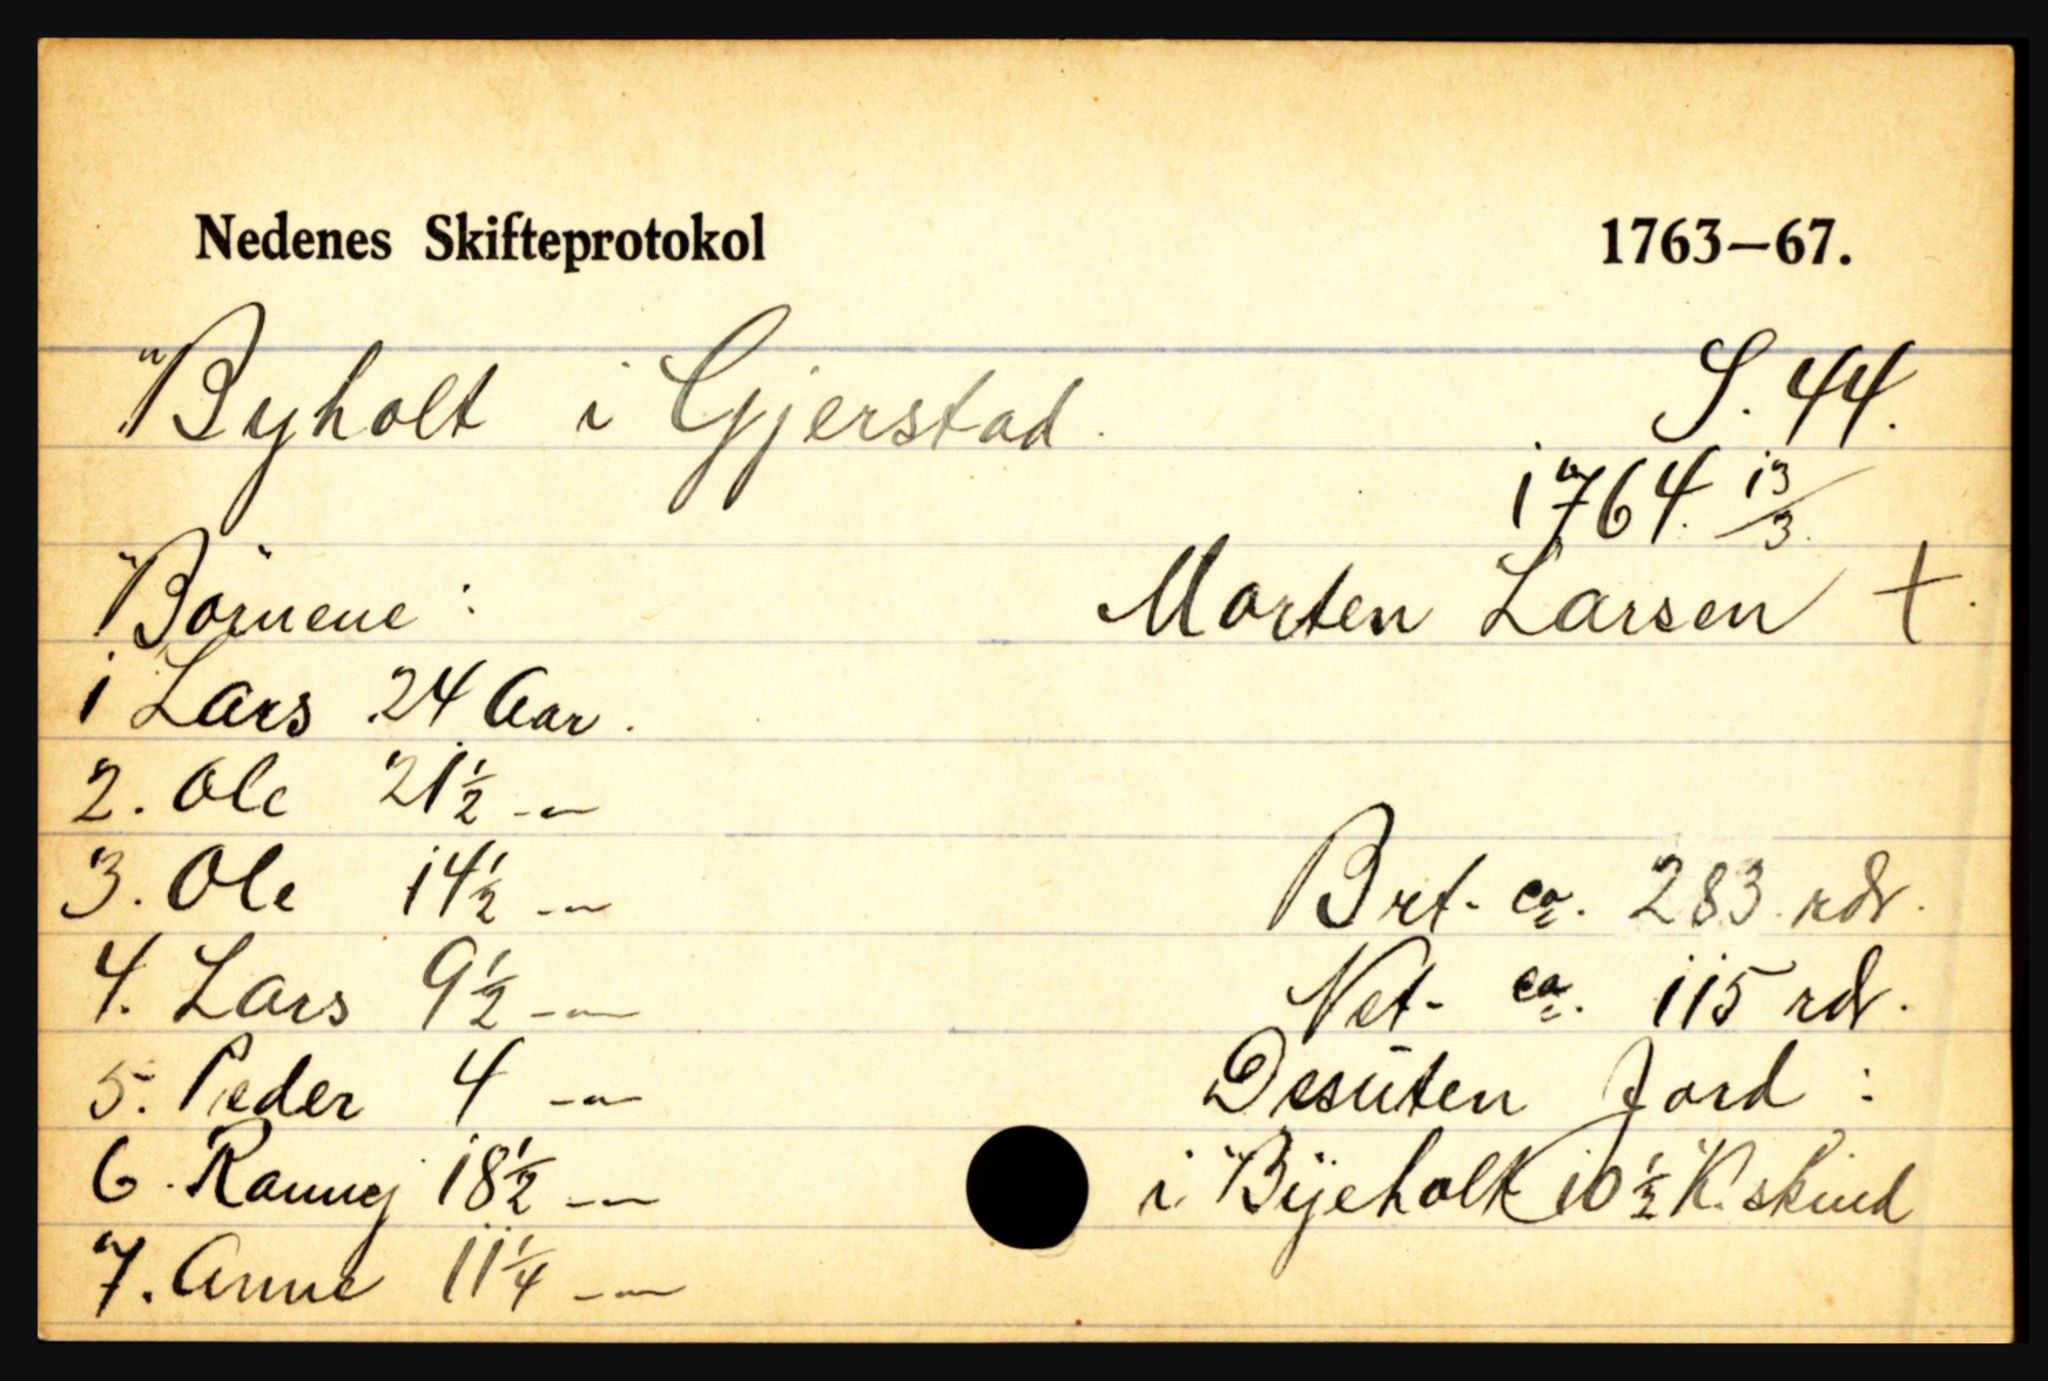 Nedenes Skifteprotokol 1763—67.
Byholt i Gjerstad. S. 44.
1764 13/3.
Börnene: Morten Larsen †.
1 Lars 24 Aar.
2. Ole 21 1/2 -"-
3. Ole 14 1/2 -"- Brt. ca. 283 rdr.
4. Lars 9 1/2 -"- Net- ca. 115 rdr.
5. Peder 4 -"- Desuten Jord:
6. Rannej 18 1/2 -"- i Byeholt 10 1/2 K. skind
7. Anne 11 1/4 -"-